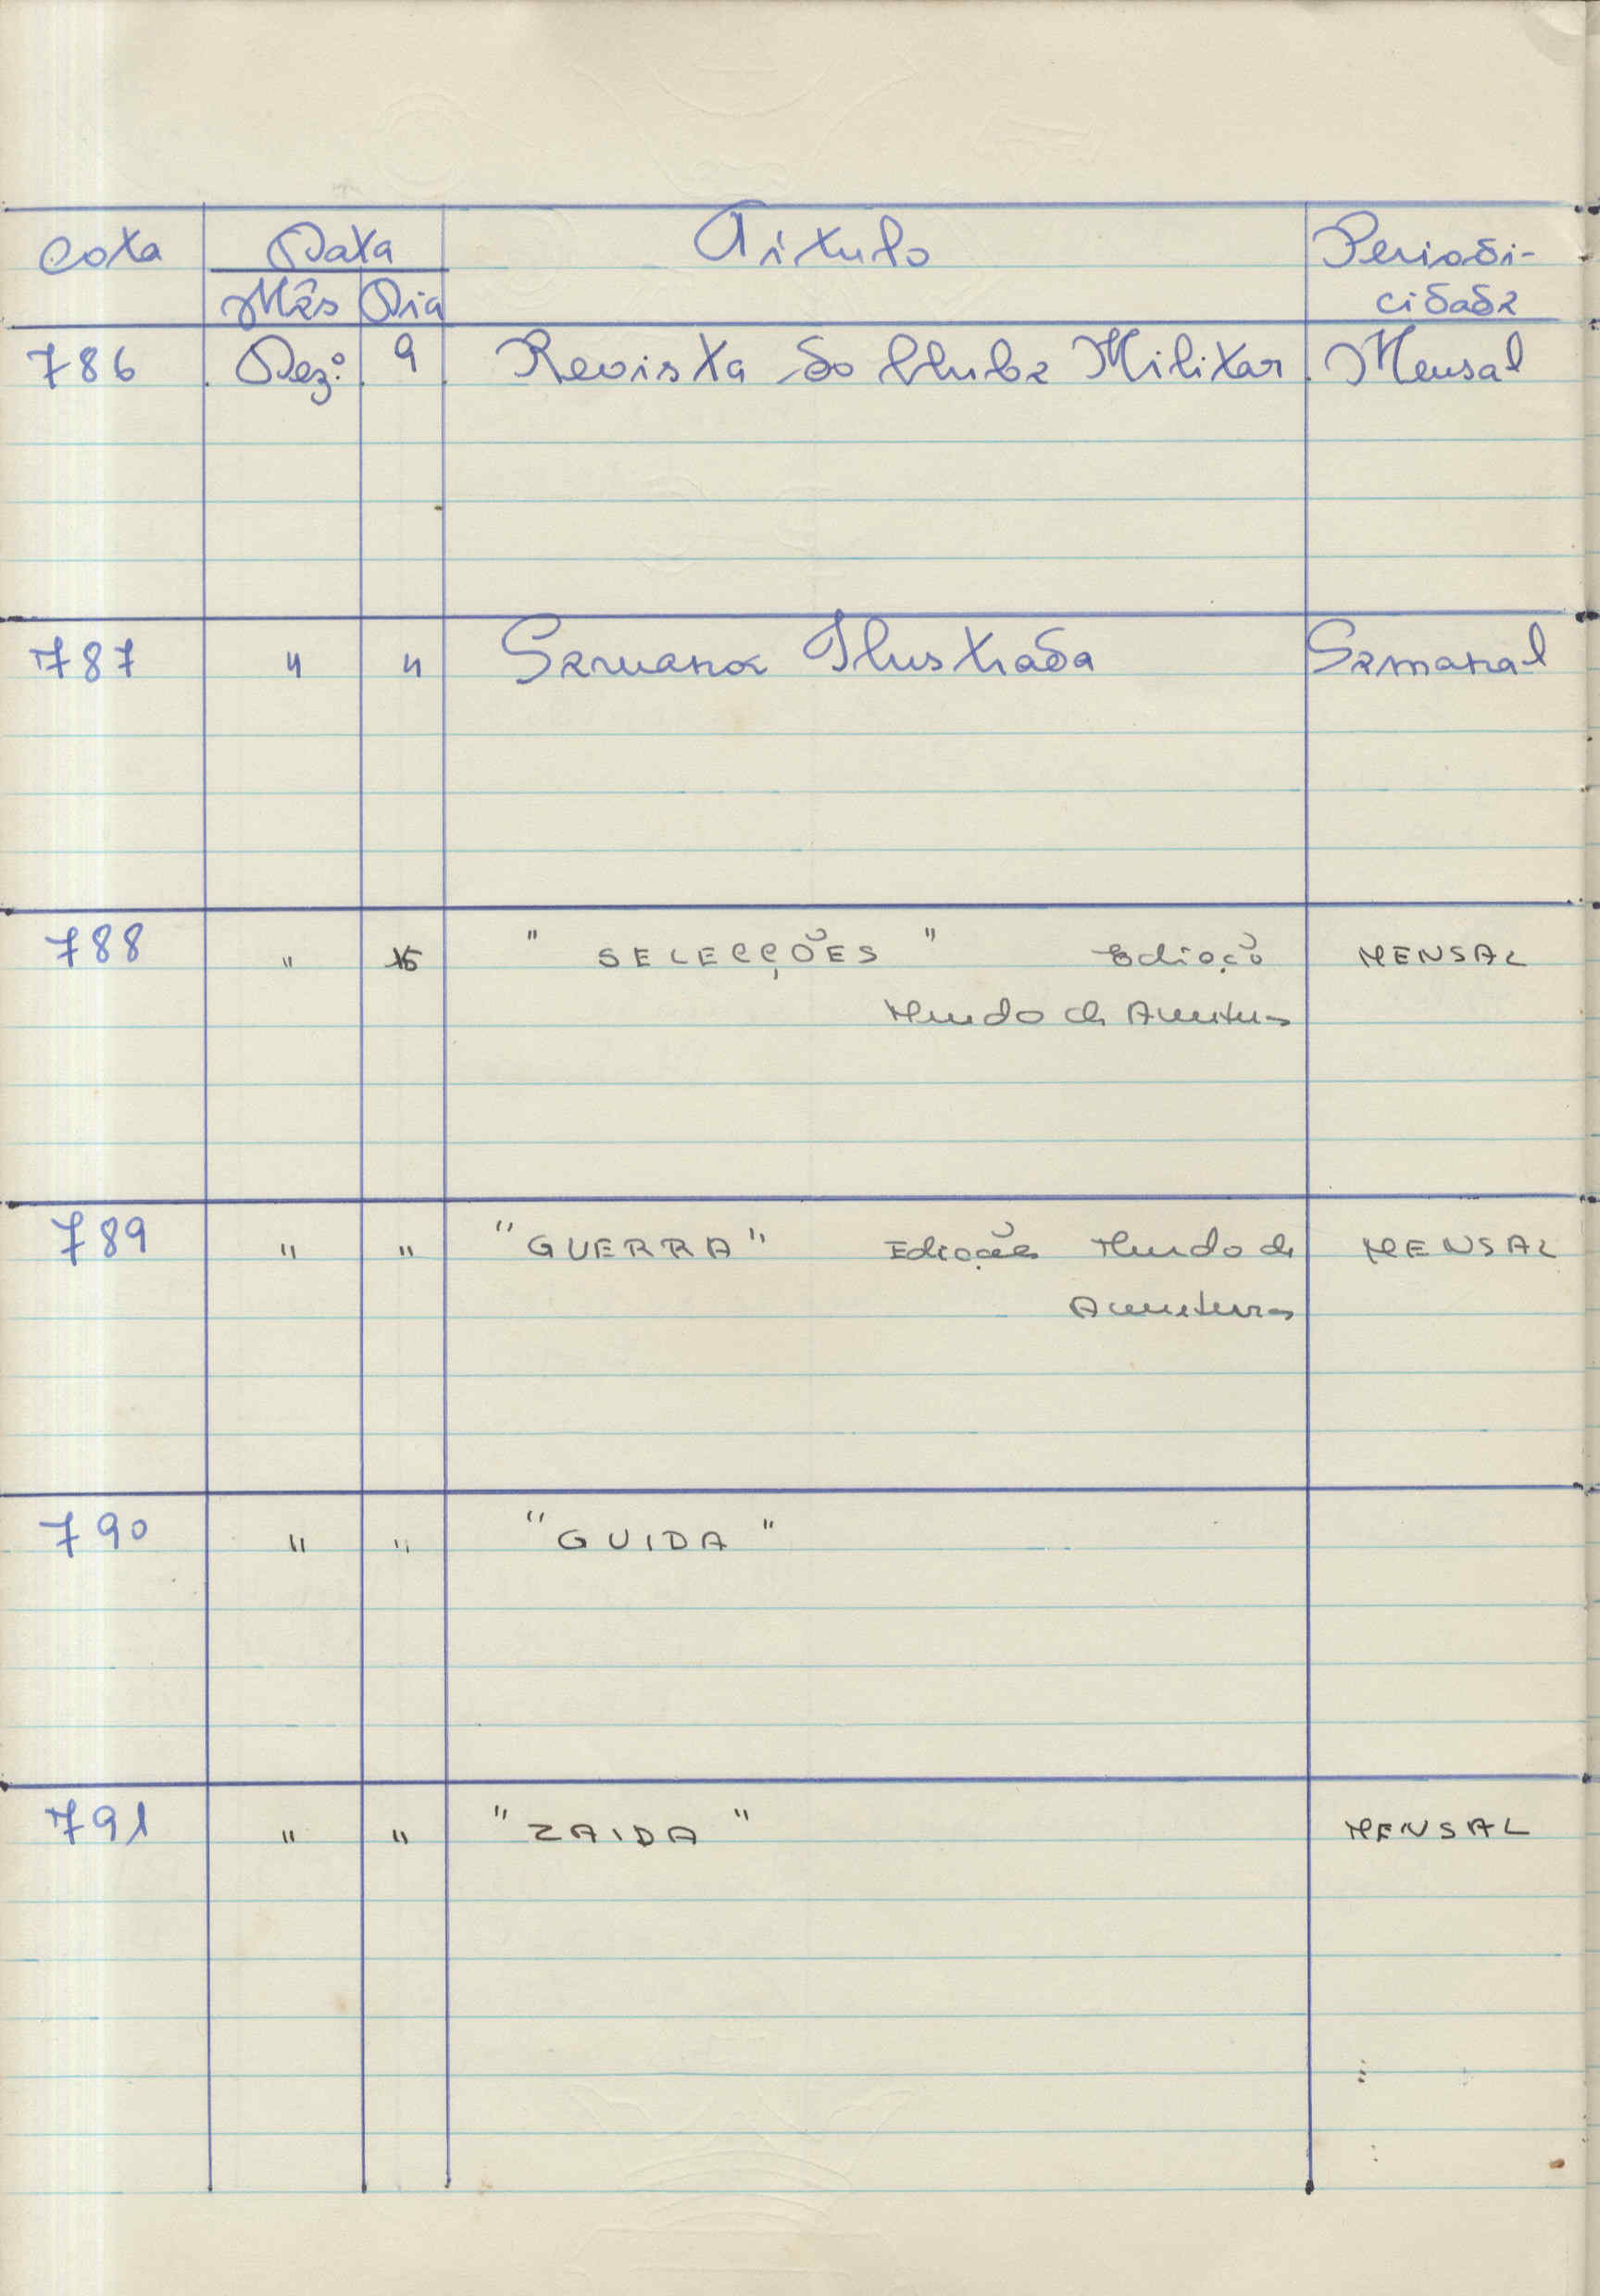 Cota Data Título Periodi-
Mês Dia cidade
786 Dez.º 9 Revista do Clube Militar Mensal
787 " " Semana Ilustrada Semanal
788 " 15 " SELECÇÕES " Edição MENSAL
Mundo de Aventuras
789 " " "GUERRA" Edições Mundo de MENSAL
Aventuras
790 " " "GUIDA"
791 " " "ZAIDA" MENSAL